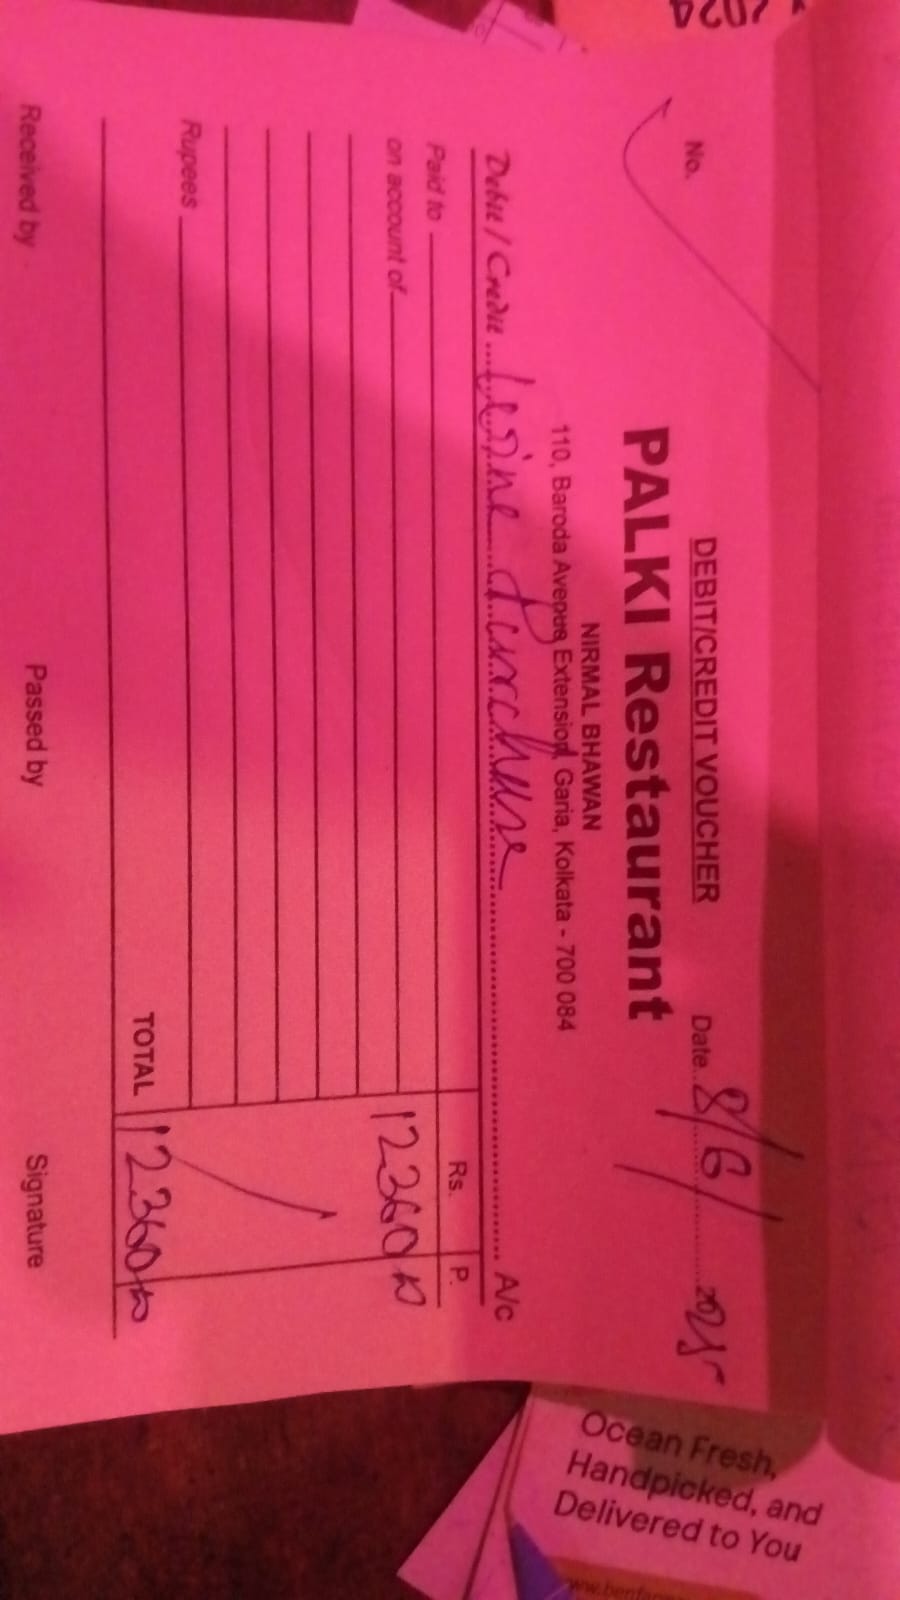 No.
DEBIT/CREDIT VOUCHER
Date 8/6/2025
PALKI Restaurant
NIRMAL BHAWAN
110, Baroda Avenue Extension, Garia, Kolkata - 700 084
Debit / Credit Wine Purchase A/c
Paid to
Rs. P.
on account of
12360
Rupees
TOTAL 12360
Received by Passed by Signature
2024
Ocean Fresh,
Handpicked, and
Delivered to You